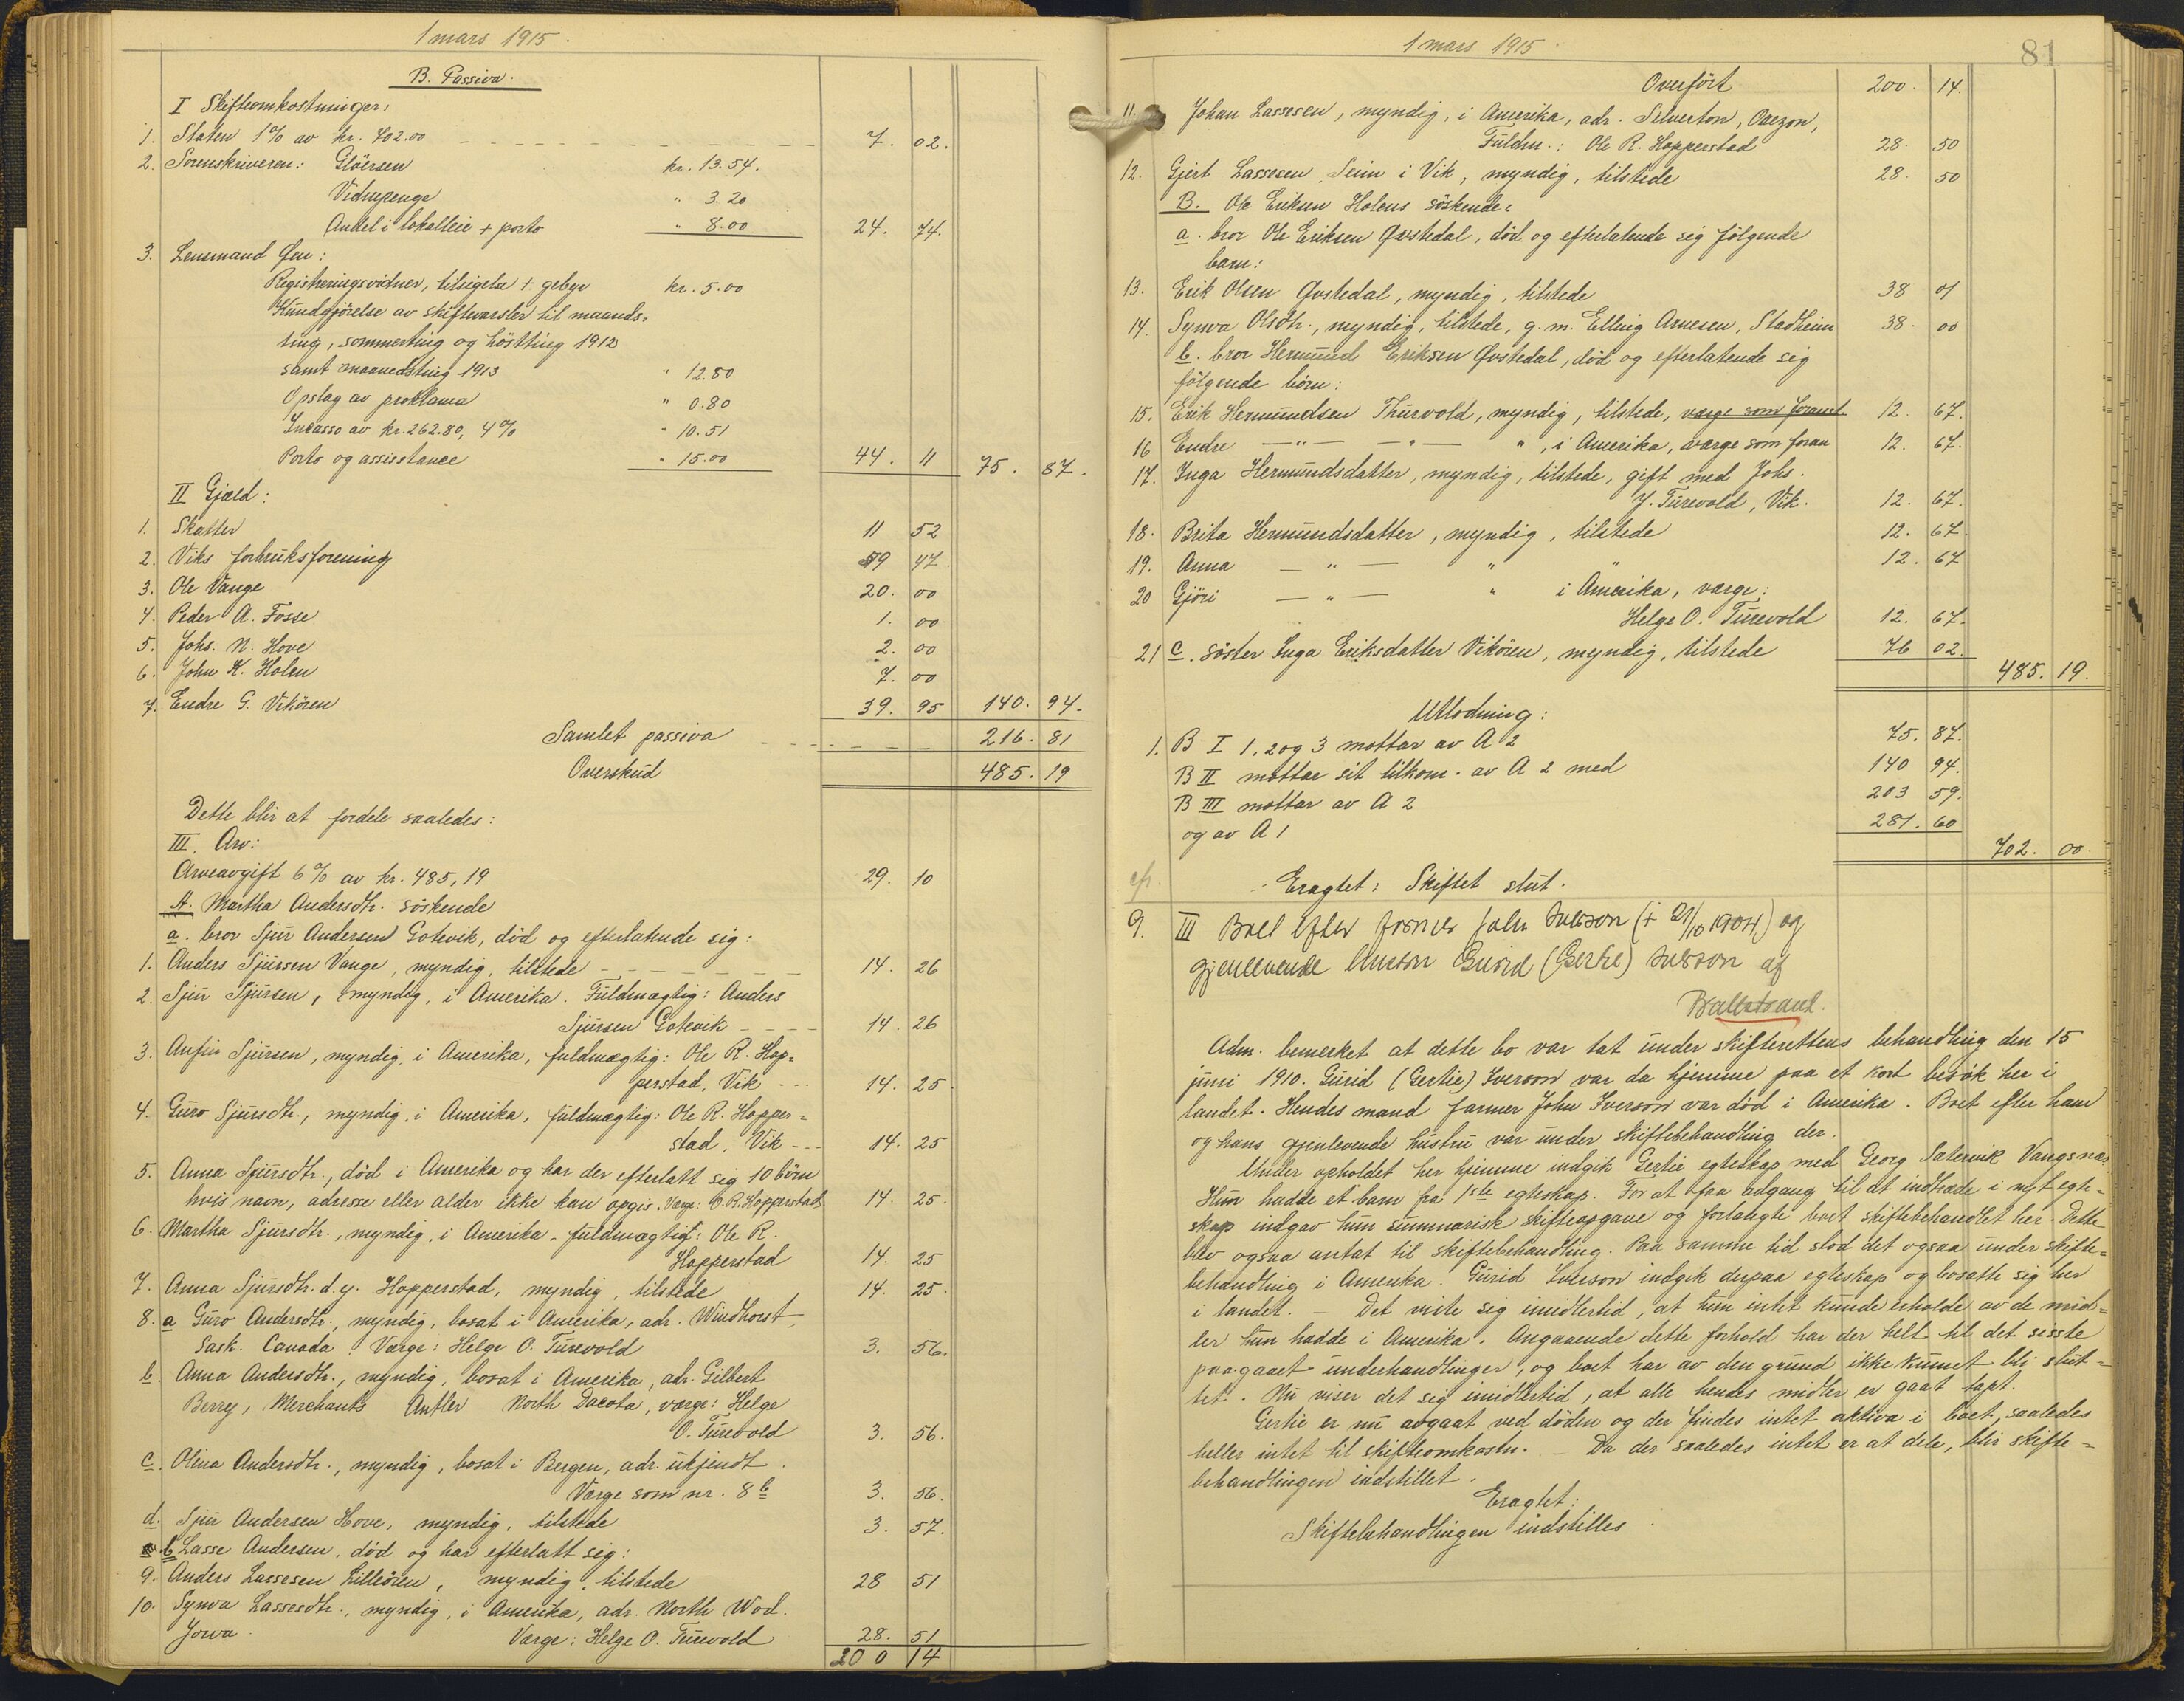 1 mars 1915.
B. Passiva.
I Skifteomkostninger:
1. Staten 1% av kr. 702.00 7. 02.
2. Sorenskriveren: Glöersen kr. 13.54.
Vidnepenge " 3.20
Andel i lokalleie + porto " 8.00 24. 74.
3. Lensmand Øen:
Registreringsvidner, tilsigelse + gebyr kr. 5.00
Kundgjörelse av skiftevarsler til maaneds-
ting, sommerting og höstting 1912
samt maanedsting 1913 " 12.80
Opslag av proklama " 0.80
Inkasso av kr. 262.80, 4% " 10.51
Porto og assisstance " 15.00 44. 11 75. 87.
II Gjæld:
1. Skatter 11 52
2. Viks forbruksforening 59 47
3. Ole Vange 20. 00
4. Peder A. Fosse 1. 00
5. Johs. N. Hove 2. 00
6. John K. Holen 7. 00
7. Endre G. Vikören 39. 95 140. 94.
Samlet passiva 216. 81
Overskud 485. 19
Dette blir at fordele saaledes:
III. Arv:
Arveavgift 6% av kr. 485,19 29. 10
A. Martha Andersdtr. söskende
a. bror Sjur Andersen Gotevik, död og efterlatende sig:
1. Anders Sjursen Vange, myndig, tilstede 14. 26
2. Sjur Sjursen, myndig, i Amerika. Fuldmægtig: Anders
Sjursen Gotevik 14. 26
3. Anfin Sjursen, myndig, i Amerika, fuldmægtig: Ole R. Hop-
perstad, Vik 14. 25
4. Guro Sjursdtr., myndig, i Amerika, fuldmægtig: Ole R. Hopper-
stad, Vik 14. 25
5. Anna Sjursdtr., död i Amerika og har der efterlatt sig 10 börn
hvis navn, adresse eller alder ikke kan opgis. Værge: O. R. Hopperstad 14. 25.
6. Martha Sjursdtr., myndig, i Amerika. fuldmægtig: Ole R.
Hopperstad 14. 25
7. Anna Sjursdtr. d.y. Hopperstad, myndig, tilstede 14. 25.
8. a Guro Andersdtr., myndig, bosat i Amerika, adr. Windhorst,
Sask. Canada. Værge: Helge O. Turevold 3. 56.
b. Anna Andersdtr., myndig, bosat i Amerika, adr. Gilbert
Berry, Merchants Antler North Dacota, værge: Helge
O. Turevold 3. 56.
c. Olina Andersdtr., myndig, bosat i Bergen, adr. ukjendt.
Værge som nr. 8 b 3. 56.
d. Sjur Andersen Hove, myndig, tilstede 3. 57.
b Lasse Andersen, död og har efterlatt sig:
9. Anders Lassesen Lilleören, myndig, tilstede 28 51
10. Synva Lassesdtr., myndig, i Amerika, adr. North Wod.
Jowa. Værge: Helge O. Turevold 28. 51
200 14
1 mars 1915.
81
Overfört 200. 14.
11. Johan Lassesen, myndig, i Amerika, adr. Silverton, Oregon,
Fuldm.: Ole R. Hopperstad 28. 50
12. Gjert Lassesen Seim i Vik, myndig, tilstede 28. 50
B. Ole Eriksen Holens söskende:
a. bror Ole Eriksen Øvstedal, död og efterlatende sig följende
barn:
13. Erik Olsen Øvstedal, myndig, tilstede 38 01
14. Synva Olsdtr., myndig, tilstede, g. m. Elling Arnesen, Stadheim 38. 00
b. bror Hermund Eriksen Øvstedal, död og efterlatende sig
fölgende börn:
15. Erik Hermundsen Thurvold, myndig, tilstede, værge som foranst. 12. 67.
16 Endre —"— —"— ", i Amerika, værge som foran 12. 67.
17. Inga Hermundsdatter, myndig, tilstede, gift med Johs.
J. Turevold, Vik. 12. 67.
18. Brita Hermundsdatter, myndig, tilstede 12. 67.
19. Anna —"— " " 12. 67
20 Gjöri —"— " i Amerika, værge:
Helge O. Turevold 12. 67.
21 c. söster Inga Eriksdatter Vikören, myndig, tilstede 76 02.
485. 19.
Utlodning:
1. B I 1, 2 og 3 mottar av A 2 75. 87.
B II mottar sit tilkom. av A 2 med 140 94.
B III mottar av A 2 203 59.
og av A 1 281. 60
702. 00.
Eragtet: Skiftet slut.
9. III Boet efter farmer John Iverson († 21/10 1904) og
gjenlevende Gurid (Gertie) Iverson af
Balestrand.
Adm. bemerket at dette bo var tat under skifterettens behandling den 15
juni 1910. Gurid (Gertie) Iverson var da hjemme paa et kort besök her i
landet. Hendes mand farmer John Iverson var död i Amerika. Boet efter ham
og hans gjenlevende hustru var under skiftebehandling der.
Under opholdet her hjemme indgik Gertie egteskap med Georg Sætervik Vangsnæs.
Hun hadde et barn fra 1ste egteskap. For at faa adgang til at indtræde i nyt egte-
skap indgav hun summarisk skifteopgave og forlangte boet skiftebehandlet her. Dette
blev ogsaa antat til skiftebehandling. Paa samme tid stod det ogsaa under skifte-
behandling i Amerika. Gurid Iverson indgik derpaa egteskap og bosatte sig her
i landet. — Det viste sig imidlertid, at hun intet kunde erholde av de mid-
ler hun hadde i Amerika. Angaaende dette forhold har der helt til det sisste
paagaaet underhandlinger, og boet har av den grund ikke kunnet bli slut-
tet. Nu viser det sig imidlertid, at alle hendes midler er gaat tapt.
Gertie er nu avgaat ved döden og der findes intet aktiva i boet, saaledes
heller intet til skifteomkostn. — Da der saaledes intet er at dele, blir skifte-
behandlingen indstillet.
Eragtet:
Skiftebehandlingen indstilles.